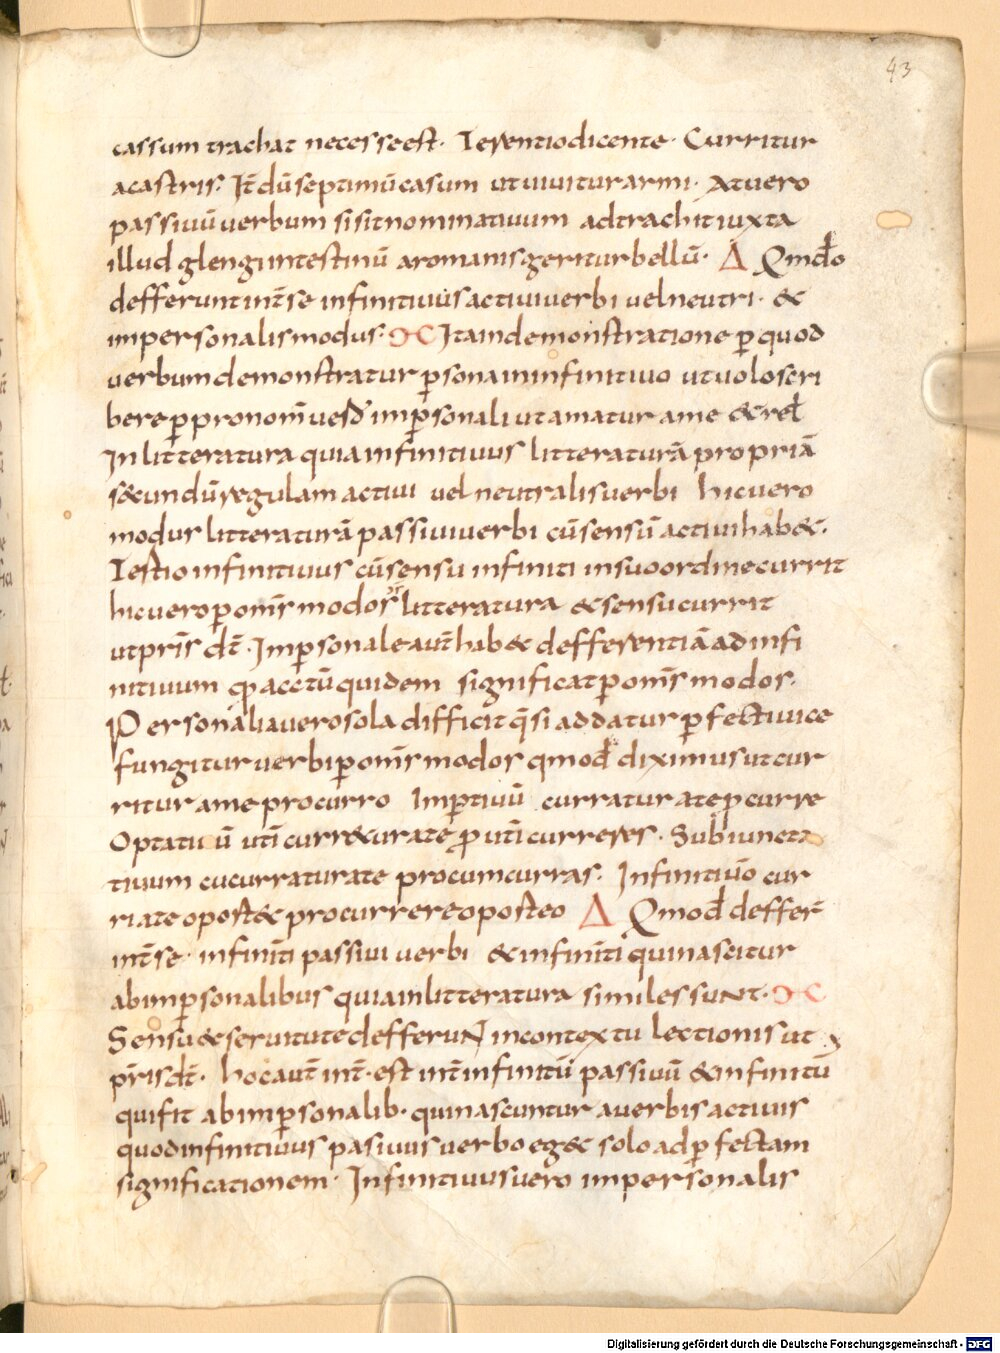 43
cassum trachat necesse est · Terentio dicente · Curritur
a castris · It̄ dū septimū casum ut uiuitur armi · At uero
passiuū uerbum si sit nominatiuum adtrachit iuxta
illud glengi intestinū a romanis geritur bellū · Δ Qmđo
defferunt int̄ se infinitiuus actiui uerbi uel neutri · &
impersonalis modus · Ita in demonstratione ꝑ quod
uerbum demonstratur ꝑsona in infinitiuo ut uolo scri
bere ꝑ pronom̄ imꝑsonali ut amatur a me & rel̄
In litteratura quia infinitiuus litteraturā propriā
s&cundū regulam actiui uel neutralis uerbi hic uero
modus litteraturā passiui uerbi cū sensū actiui hab& ·
Testio infinitiuus cū sensu infiniti in suo ordine currit
hic uero ꝑ om̄s modos litteratura & sensu currit
ut pris̄ dt̄ · Imꝑsonale aut̄ hab& defferentiā ad infi
nitiuum quidem significat ꝑ om̄s modos ·
Personalia uero sola difficit q̄ si addatur ꝑfecti uice
fungitur uerbi ꝑ om̄s modos qmođ diximus ut cur
ritur a me pro curro Imꝑtiuū curratur a te ꝓ curre
Optatiuū utī curr&ur a te ꝓ utī curreres · Subiuncta
tiuum cu curratur a te pro cum curras · Infinitiuō cur
ri a te oport& pro currere oporteo Δ Qmođ deffer̄
int̄ se · infiniti passiui uerbi & infiniti qui nascitur
ab imꝑsonalibus quia in litteratura similes sunt ·
Sensu & seruitute defferunt in contextu lectionis ut
pris̄ dt̄ · hoc aut̄ int̄·est int̄ infinitū passiuū & infinitū
qui fit ab imꝑsonalib· qui nascuntur a uerbis actiuis
quod infinitiuus pasiuus uerbo eg& solo ad ꝑfectam
significationem · Infinitiuus uero impersonalis
Digitalisierung gefördert durch die Deutsche Forschungsgemeinschaft - DFG